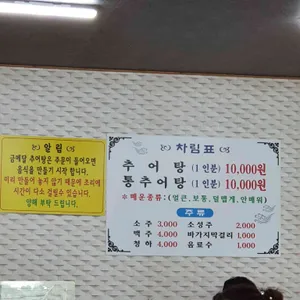 알 림
금메달 추어탕은 주문이 들어오면
음식을 만들기 시작 합니다.
미리 만들어 놓지 않기 때문에 조리에
시간이 다소 걸릴수 있습니다.
양해 부탁 드립니다.
차림표
추 어 탕 (1 인분) 10,000원
통추어탕 (1 인분) 10,000원
※ 매운종류: (얼큰, 보통, 덜맵게, 안매워)
주 류
소 주 3,000 소성주 2,000
맥 주 4,000 바가지막걸리 1,000
청 하 4,000 음료수 1,000